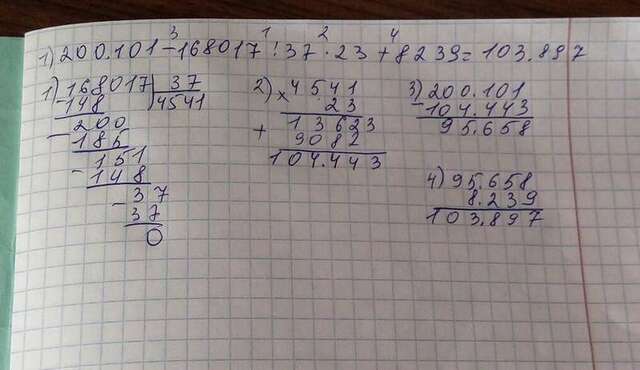 3 1 2 4
1) 200.101 - 168017 : 37 · 23 + 8239 = 103.897
1) 168017 37
- 148 4541
- 200
185
- 151
148
- 37
37
0
2) × 4541
23
+ 13623
9082
104.443
3) 200.101
- 104.443
95.658
4) 95.658
8.239
103.897